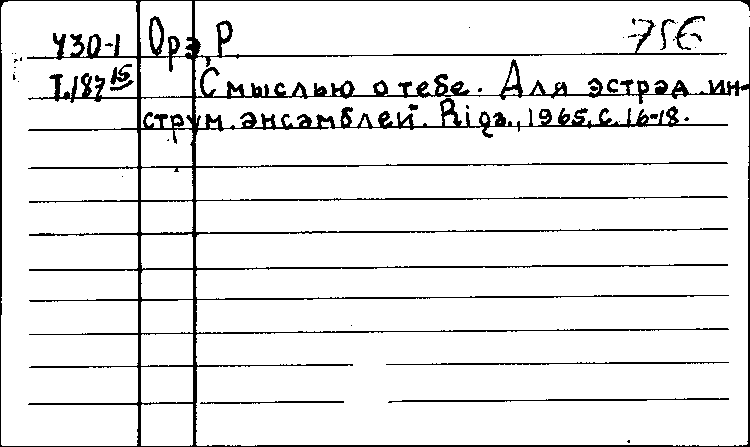 У30-1 Орэ, Р. 756
Т.187 15 С мыслью о тебе. Для эстрад. ин-
струм. ансамблей. Riga., 1965, с. 16-18.